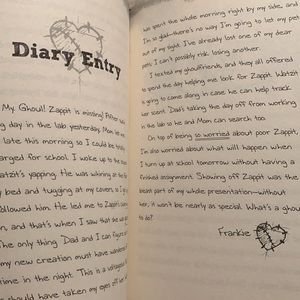 Diary Entry
My Ghoul! Zappit is missing! After
day in the lab yesterday, Mom let me
late this morning so I could be totally
charged for school. I woke up to the sound
Watzit's yapping. He was whining at the
bed and tugging at my covers, so I
followed him. He led me to Zappit's
and that's when I saw that she was
The only thing Dad and I can figure
my new creation must have wandered
time in the night. This is a voltageous
should have taken my eyes off her
has spent the whole morning right by my side, and
I'm so glad—there's no way I'm going to let my
out of my sight. I've already lost one of my dear
pets; I can't possibly risk losing another.
I texted my ghoulfriends, and they all offered
to spend the day helping me look for Zappit. Watzit
is going to come along in case he can help track
her scent. Dad's taking the day off from working
in the lab so he and Mom can search too.
On top of being so worried about poor Zappit,
I'm also worried about what will happen when
I turn up at school tomorrow without having a
finished assignment. Showing off Zappit was the
best part of my whole presentation—without
her, it won't be nearly as special. What's a ghoul
to do?
Frankie